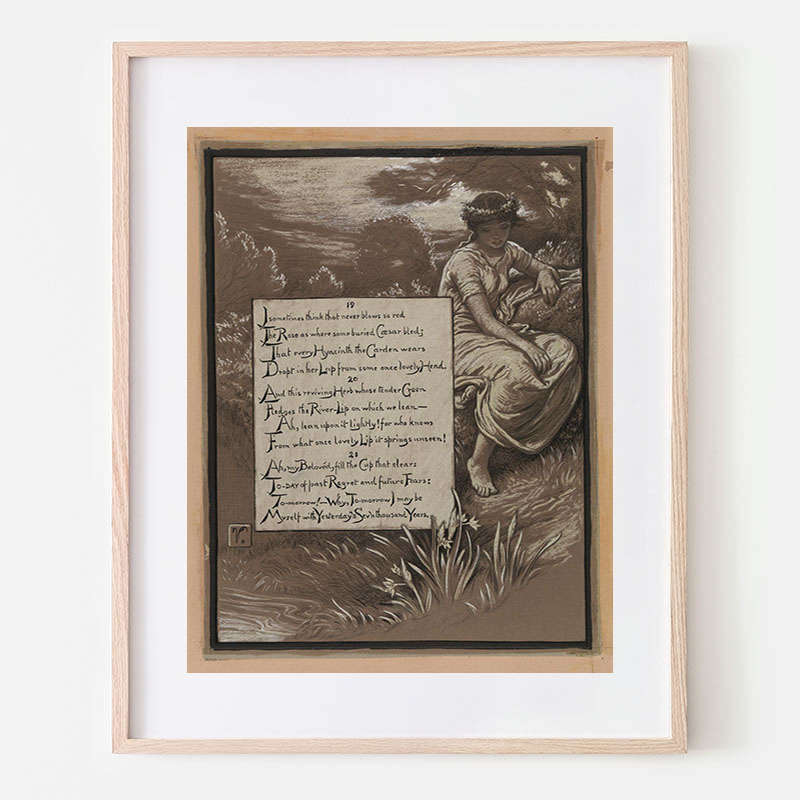 19
I sometimes think that never blows so red
The Rose as where some buried Cæsar bled;
That every Hyacinth the Garden wears
Dropt in her Lap from some once lovely Head.
20
And this reviving Herb whose tender Green
Fledges the River-Lip on which we lean—
Ah, lean upon it lightly! for who knows
From what once lovely Lip it springs unseen!
21
Ah, my Belovéd, fill the Cup that clears
To-DAY of past Regret and future Fears:
To-morrow!—Why, To-morrow I may be
Myself with Yesterday's Sev'n thousand Years.
V.